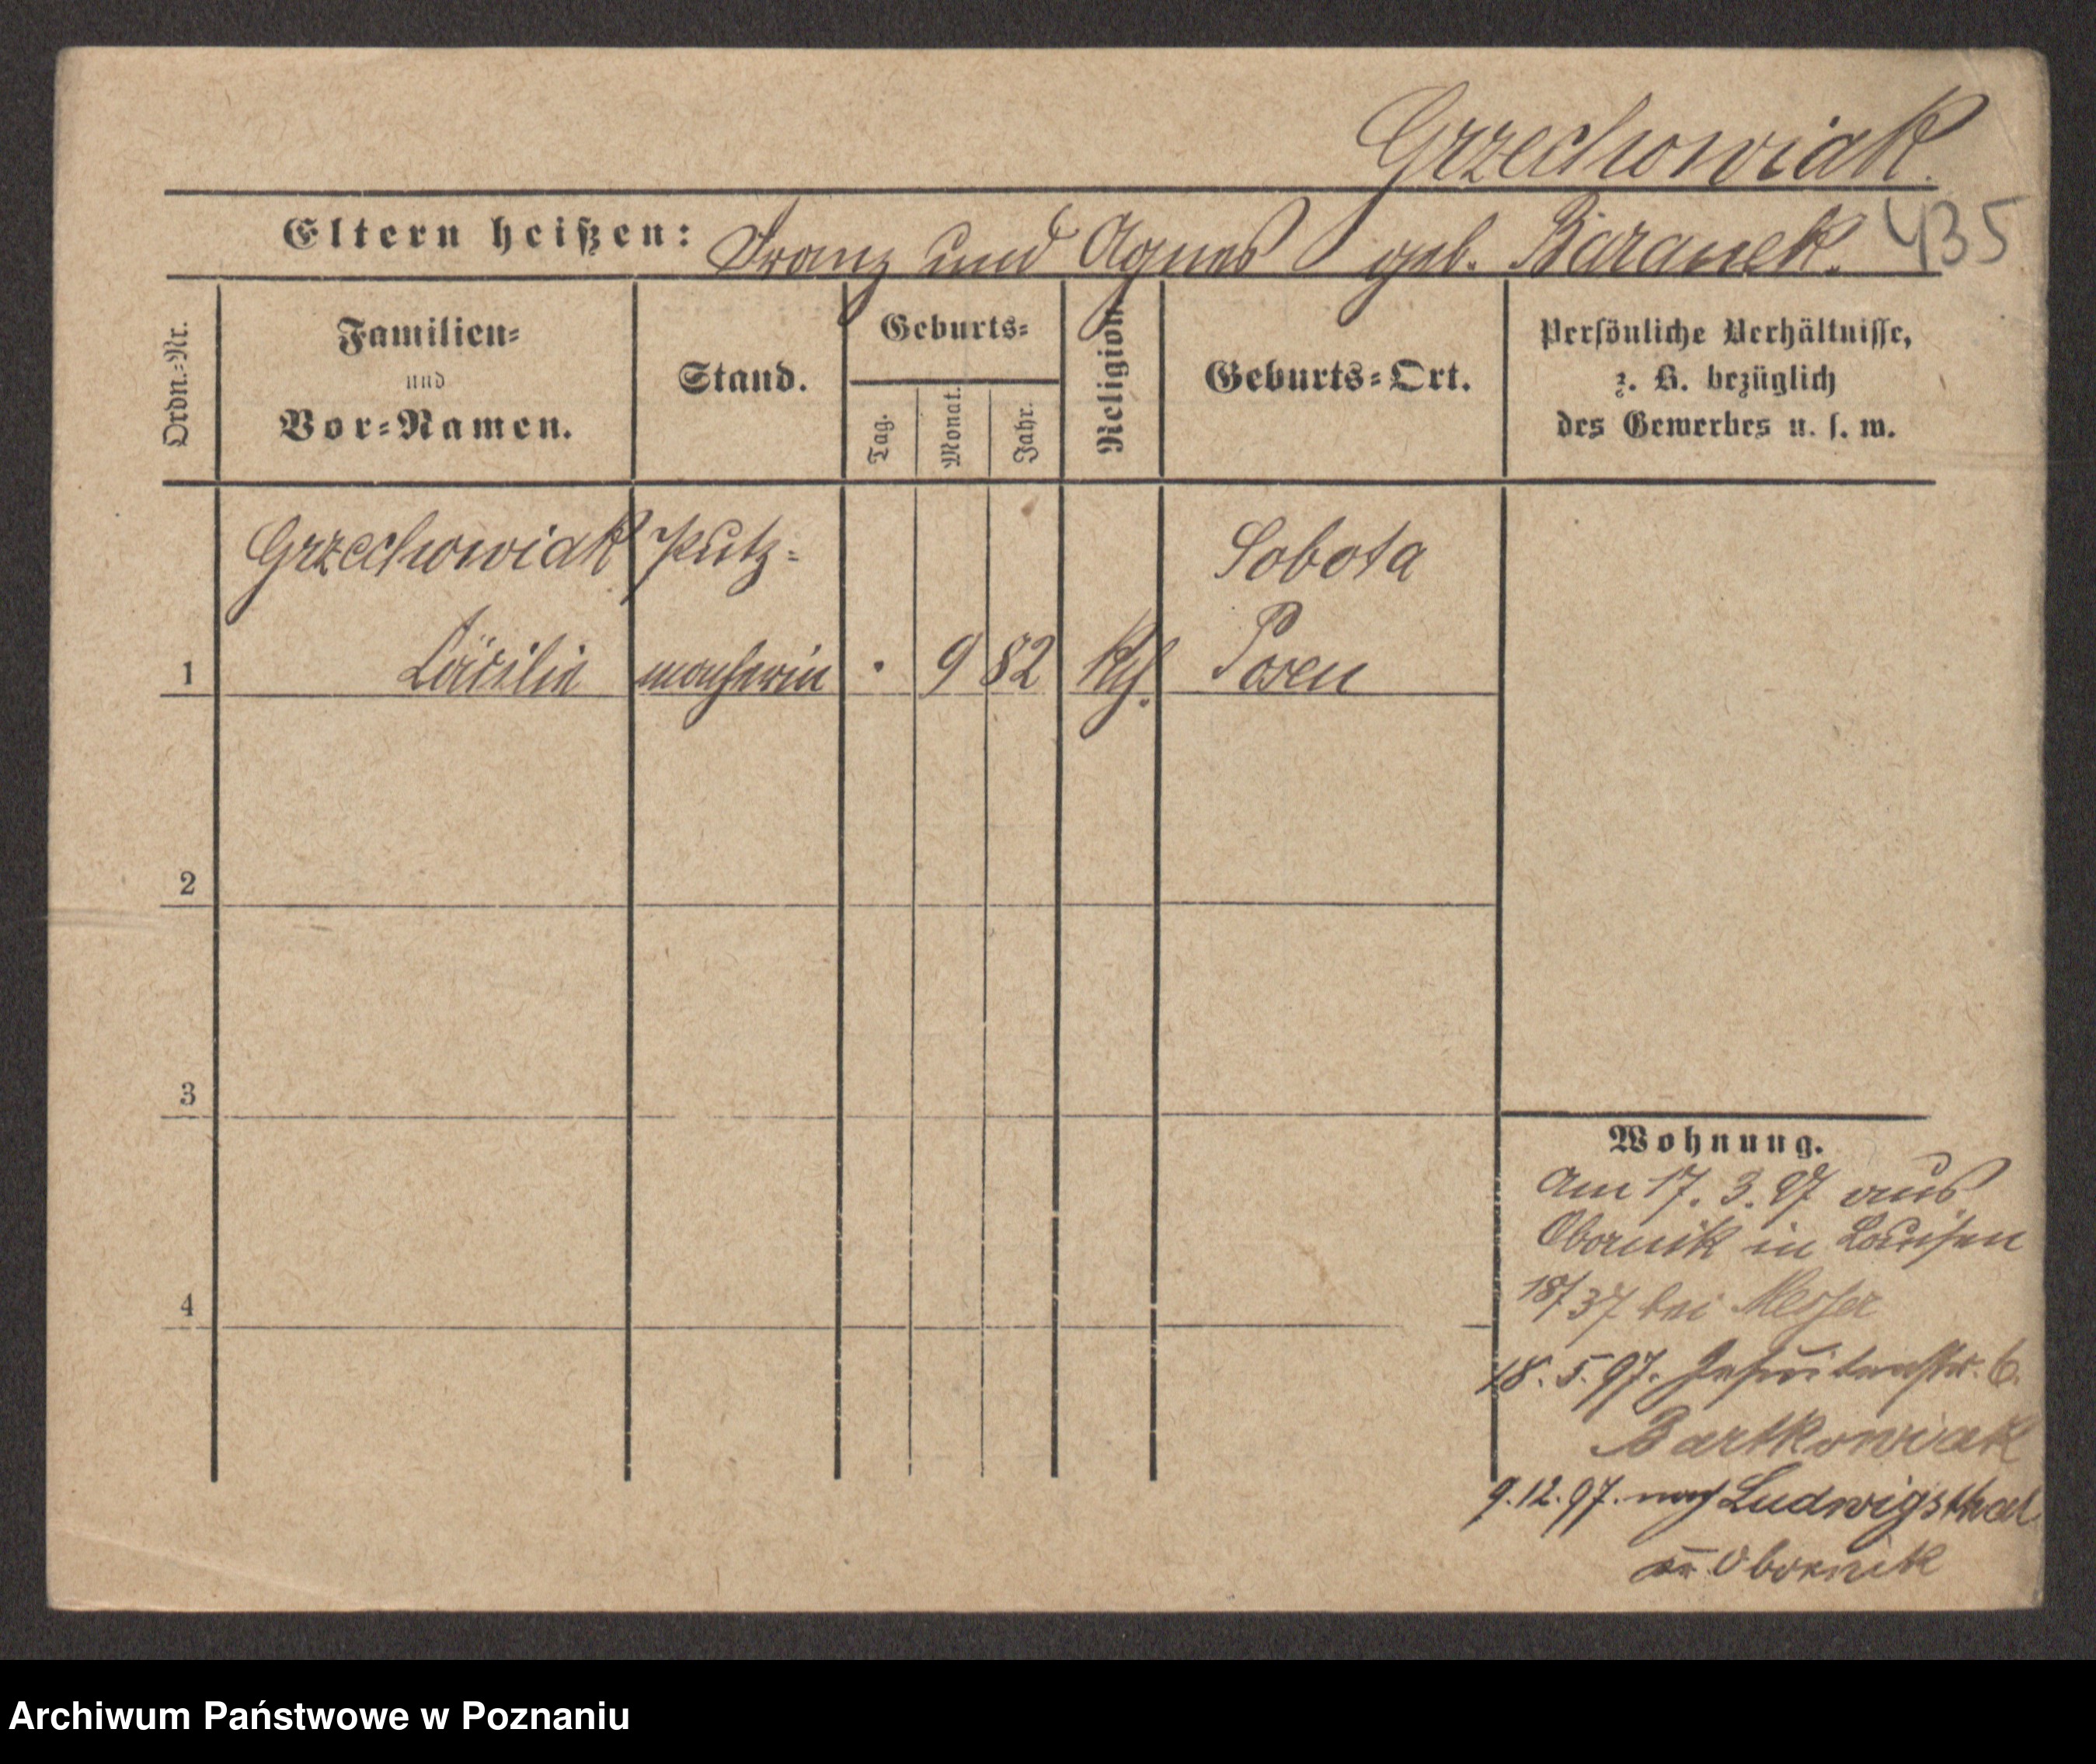 Grzechowiak.
Eltern heißen: Franz und Agnes geb. Baranek. 435
Ordn.-Nr.
Familien-
und
Vor-Namen.
Stand.
Geburts-
Tag.
Monat.
Jahr.
Religion.
Geburts-Ort.
Persönliche Verhältnisse,
z. B. bezüglich
des Gewerbes u. s. w.
Grzechowiak Putz- Sobota
1 Cäcilie macherin · 9 82 kth. Posen
2
3
4
Wohnung.
Am 17. 3. 97 aus
Obornik in
18/37 bei Messer
18. 5. 97. Jesuitenstr. 6.
Bartkowiak
9.12.97. nach Ludwigsthal
Obornik
Archiwum Państwowe w Poznaniu